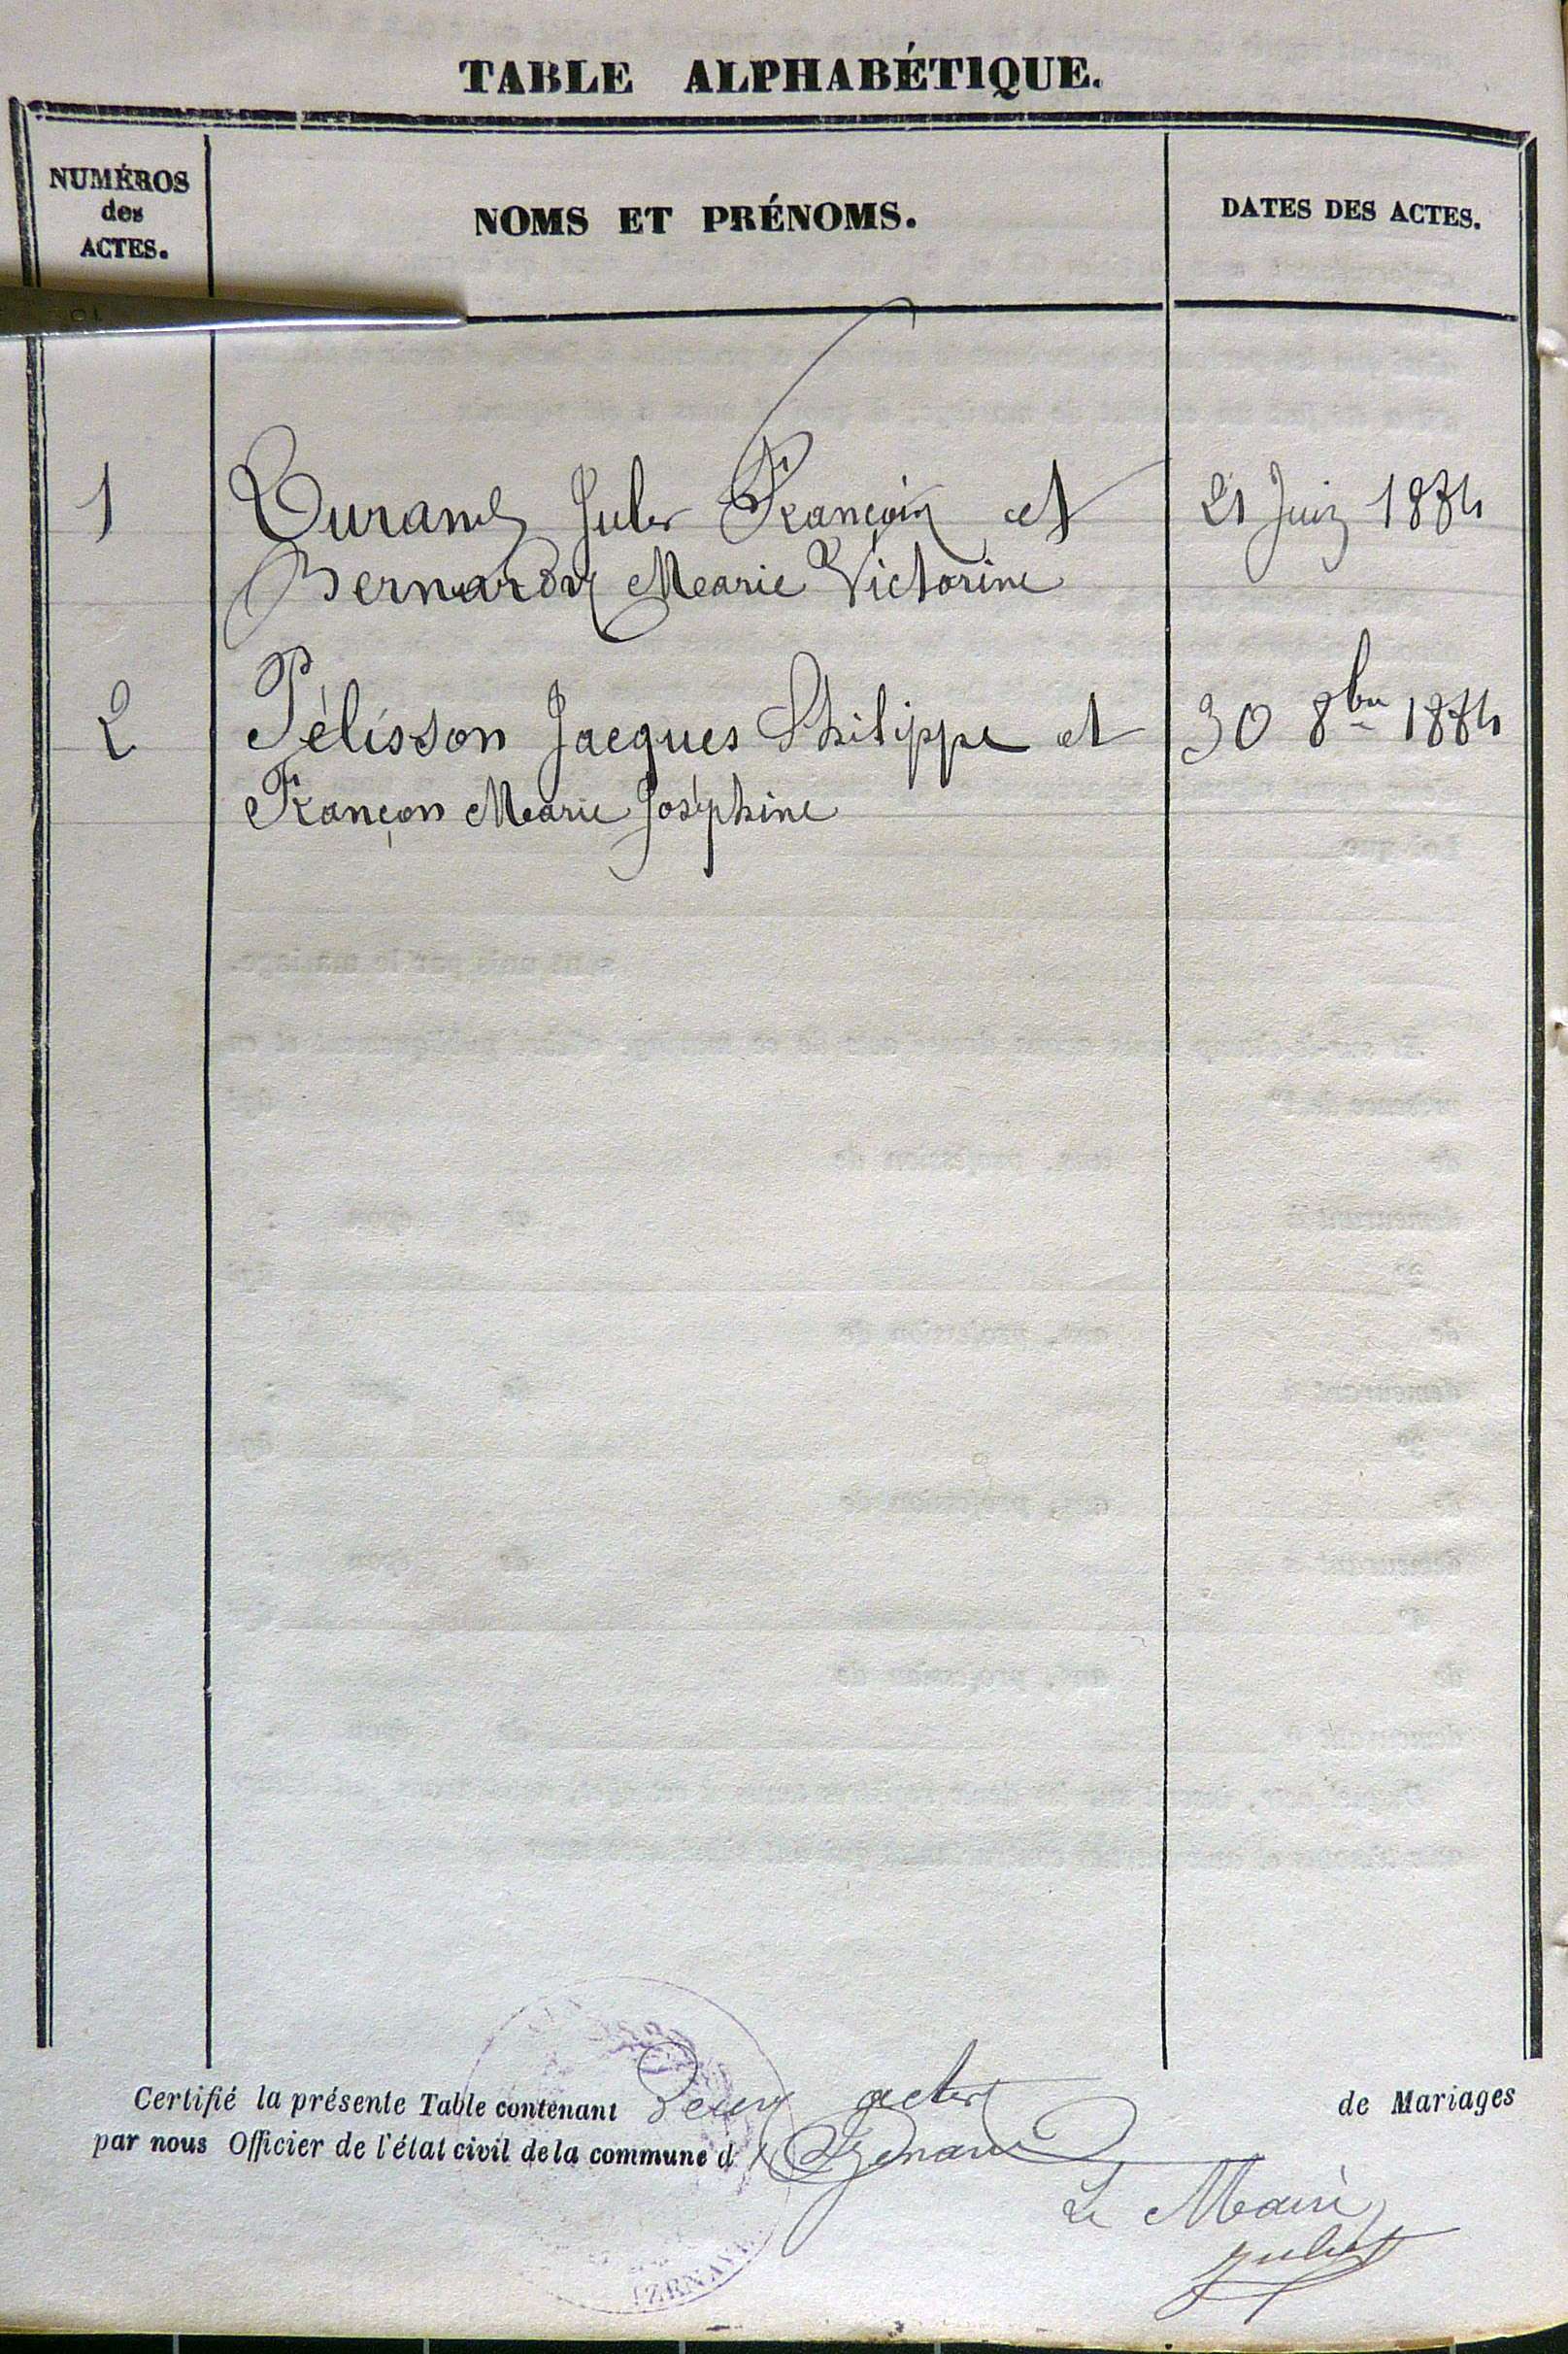 TABLE ALPHABÉTIQUE.
NUMÉROS
des
ACTES.
NOMS ET PRÉNOMS.
DATES DES ACTES.
1 Durand Jules François et 21 Juin 1884
Bernardon Marie Victorine
2 Pélisson Jacques Philippe et 30 8bre 1884
Françon Marie Joséphine
Certifié la présente Table contenant Deux actes de Mariages
par nous Officier de l'état civil de la commune d'
Le Maire